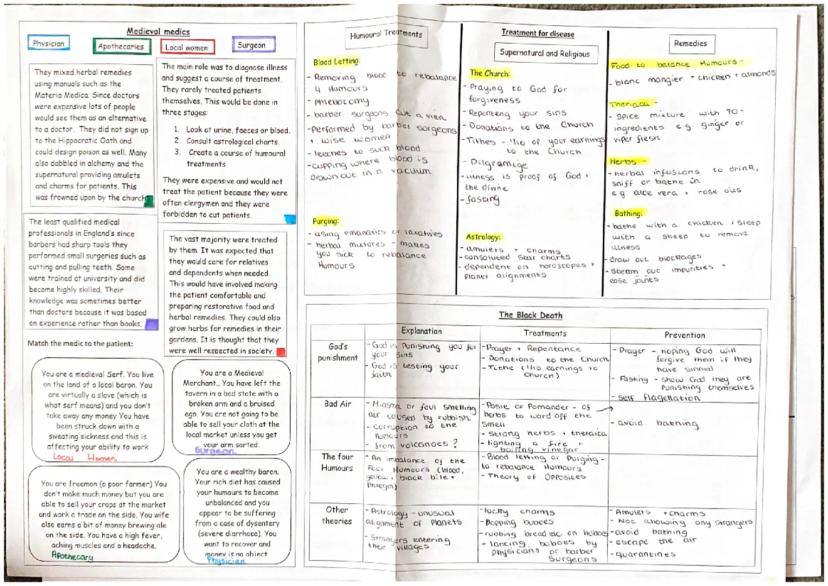 Medieval medics
Physician
Apothecaries
Local women
Surgeon
They mixed herbal remedies
using manuals such as the
Materia Medica. Since doctors
were expensive lots of people
would see them as an alternative
to a doctor. They did not sign up
to the Hippocratic Oath and
could design poison as well. Many
also dabbled in alchemy and the
supernatural providing amulets
and charms for patients. This
was frowned upon by the church
The main role was to diagnose illness
and suggest a course of treatment.
They rarely treated patients
themselves. This would be done in
three stages:
1. Look at urine, faeces or blood.
2. Consult astrological charts.
3. Create a course of humoural
treatments
They were expensive and would not
treat the patient because they were
often clergymen and they were
forbidden to cut patients.
The least qualified medical
professionals in England since
barbers had sharp tools they
performed small surgeries such as
cutting and pulling teeth. Some
were trained at university and did
become highly skilled. Their
knowledge was sometimes better
than doctors because it was based
on experience rather than books.
The vast majority were treated
by them. It was expected that
they would care for relatives
and dependents when needed.
This would have involved making
the patient comfortable and
preparing restorative food and
herbal remedies. They could also
grow herbs for remedies in their
gardens. It is thought that they
were well respected in society.
Match the medic to the patient:
You are a medieval Serf. You live
on the land of a local baron. You
are virtually a slave (which is
what serf means) and you don't
take away any money You have
been struck down with a
sweating sickness and this is
affecting your ability to work
Local Women
You are a Medieval
Merchant.. You have left the
tavern in a bad state with a
broken arm and a bruised
ego. You are not going to be
able to sell your cloth at the
local market unless you get
your arm sorted.
Surgeon
You are freeman (a poor farmer) You
don't make much money but you are
able to sell your crops at the market
and work a trade on the side. You wife
also earns a bit of money brewing ale
on the side. You have a high fever,
aching muscles and a headache.
Apothecary
You are a wealthy baron.
Your rich diet has caused
your humours to become
unbalanced and you appear
to be suffering
from a case of dysentery
(severe diarrhoea). You
want to recover and
money is no object
Physician
Treatment for disease
Humoural Treatments
Blood Letting:
- Removing blood to rebalance
4 Humours
- Phlebotomy
- barber surgeons cut a vein
- Performed by barber surgeons
+ wise women
- leaches to suck blood
- cupping where blood is
drawn out in a vacuum
Purging:
- using emanatics or laxatives
- herbal mixtures - makes
you sick to rebalance
Humours
Supernatural and Religious
The Church:
- Praying to God for
forgiveness
- Repenting your sins
- Donations to the Church
- Tithes - 1/10 of your earnings
to the Church
- Pilgramige
- illness is proof of God +
the divine
- fasting
Astrology:
- amulets + charms
- consulted star charts
- dependent on horoscopes +
Planet alignments
Remedies
Food to balance Humours -
- blanc mangier - chicken + almonds
Theriaca -
- Spice mixture with 70-
ingredients e.g ginger or
viper flesh
Herbs -
- herbal infusions to drink,
sniff or bathe in
e.g aloe vera + rose oils
Bathing:
- bathe with a chicken / sleep
with a sheep to remove
illness
- draw out blockages
- steam out impurities +
ease joints
The Black Death
Explanation
Treatments
Prevention
God's
punishment
- God is Punishing you for
your sins
- God is testing your
faith
- Prayer + Repentance
- Donations to the Church
- Tithe (1/10 earnings to
Church)
- Prayer - hoping God will
forgive them if they
have sinned
- Fasting - show God they are
punishing themselves
- Self flagellation
Bad Air
- Miasma or foul smelling
air caused by rubbish
- corruption to the
Humours
- from volcanoes?
- Posie or Pomander - of
herbs to ward off the
smell
- strong herbs + theraica
- lighting a fire +
boiling vinegar
- avoid bathing
The four
Humours
- An imbalance of the
four Humours (blood,
yellow + black bile +
Phlegm)
- Blood letting or Purging -
to rebalance Humours
- Theory of Opposites
Other
theories
- Astrology - unusual
alignment of Planets
- Strangers entering
their villages
- lucky charms
- Popping buboes
- rubbing bread etc on buboes
- lancing buboes by
physicians or barber
Surgeons
- Amulets + charms
- Not allowing any strangers
- avoid bathing
- escape the air
- quarantines